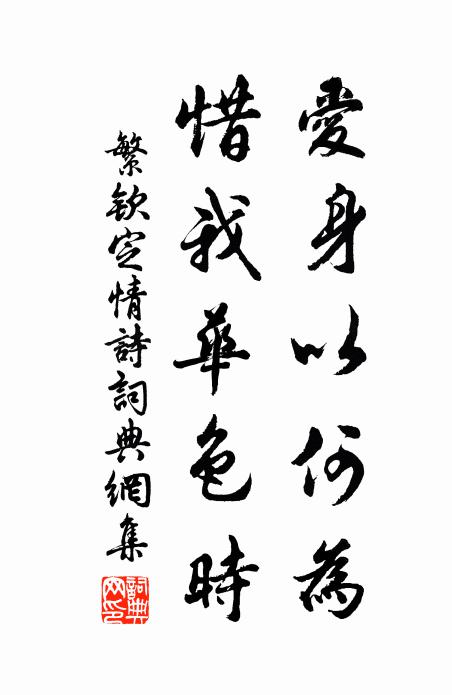 愛身以何為
惜我華色時
繁欽定情詩詞典網集
詞典網印